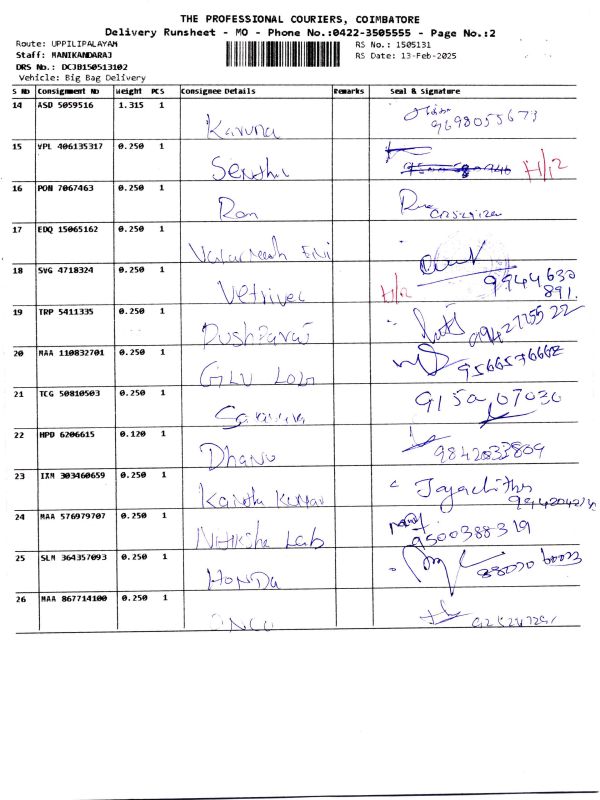 THE PROFESSIONAL COURIERS, COIMBATORE
Delivery Runsheet - MO - Phone No.:0422-3505555 - Page No.:2
Route: UPPILIPALAYAM
RS No.: 1505131
Staff: MANIKANDARAJ
RS Date: 13-Feb-2025
DRS No.: DCJB150513102
Vehicle: Big Bag Delivery
S No Consignment No Weight PCS Consignee Details Remarks Seal & Signature
14 ASD 5059516 1.315 1
Karuna 9698055673
15 VPL 406135317 0.250 1
Senthil H/12
16 PON 7067463 0.250 1
Ram
17 EDQ 15065162 0.250 1
18 SVG 4718324 0.250 1
Vetrivel H/12 9944630
891.
19 TRP 5411335 0.250 1
Pushparaj
20 MAA 110832701 0.250 1
9566576662
21 TCG 50810503 0.250 1
Saravana 9150 07030
22 HPD 6206615 0.120 1
Dhanu 9842033809
23 IXM 303460659 0.250 1
Kavitha Kumar Jayachithra
24 MAA 576979707 0.250 1
Nithiksha Lab 9500388319
25 SLM 364357093 0.250 1
HONDA
26 MAA 867714100 0.250 1